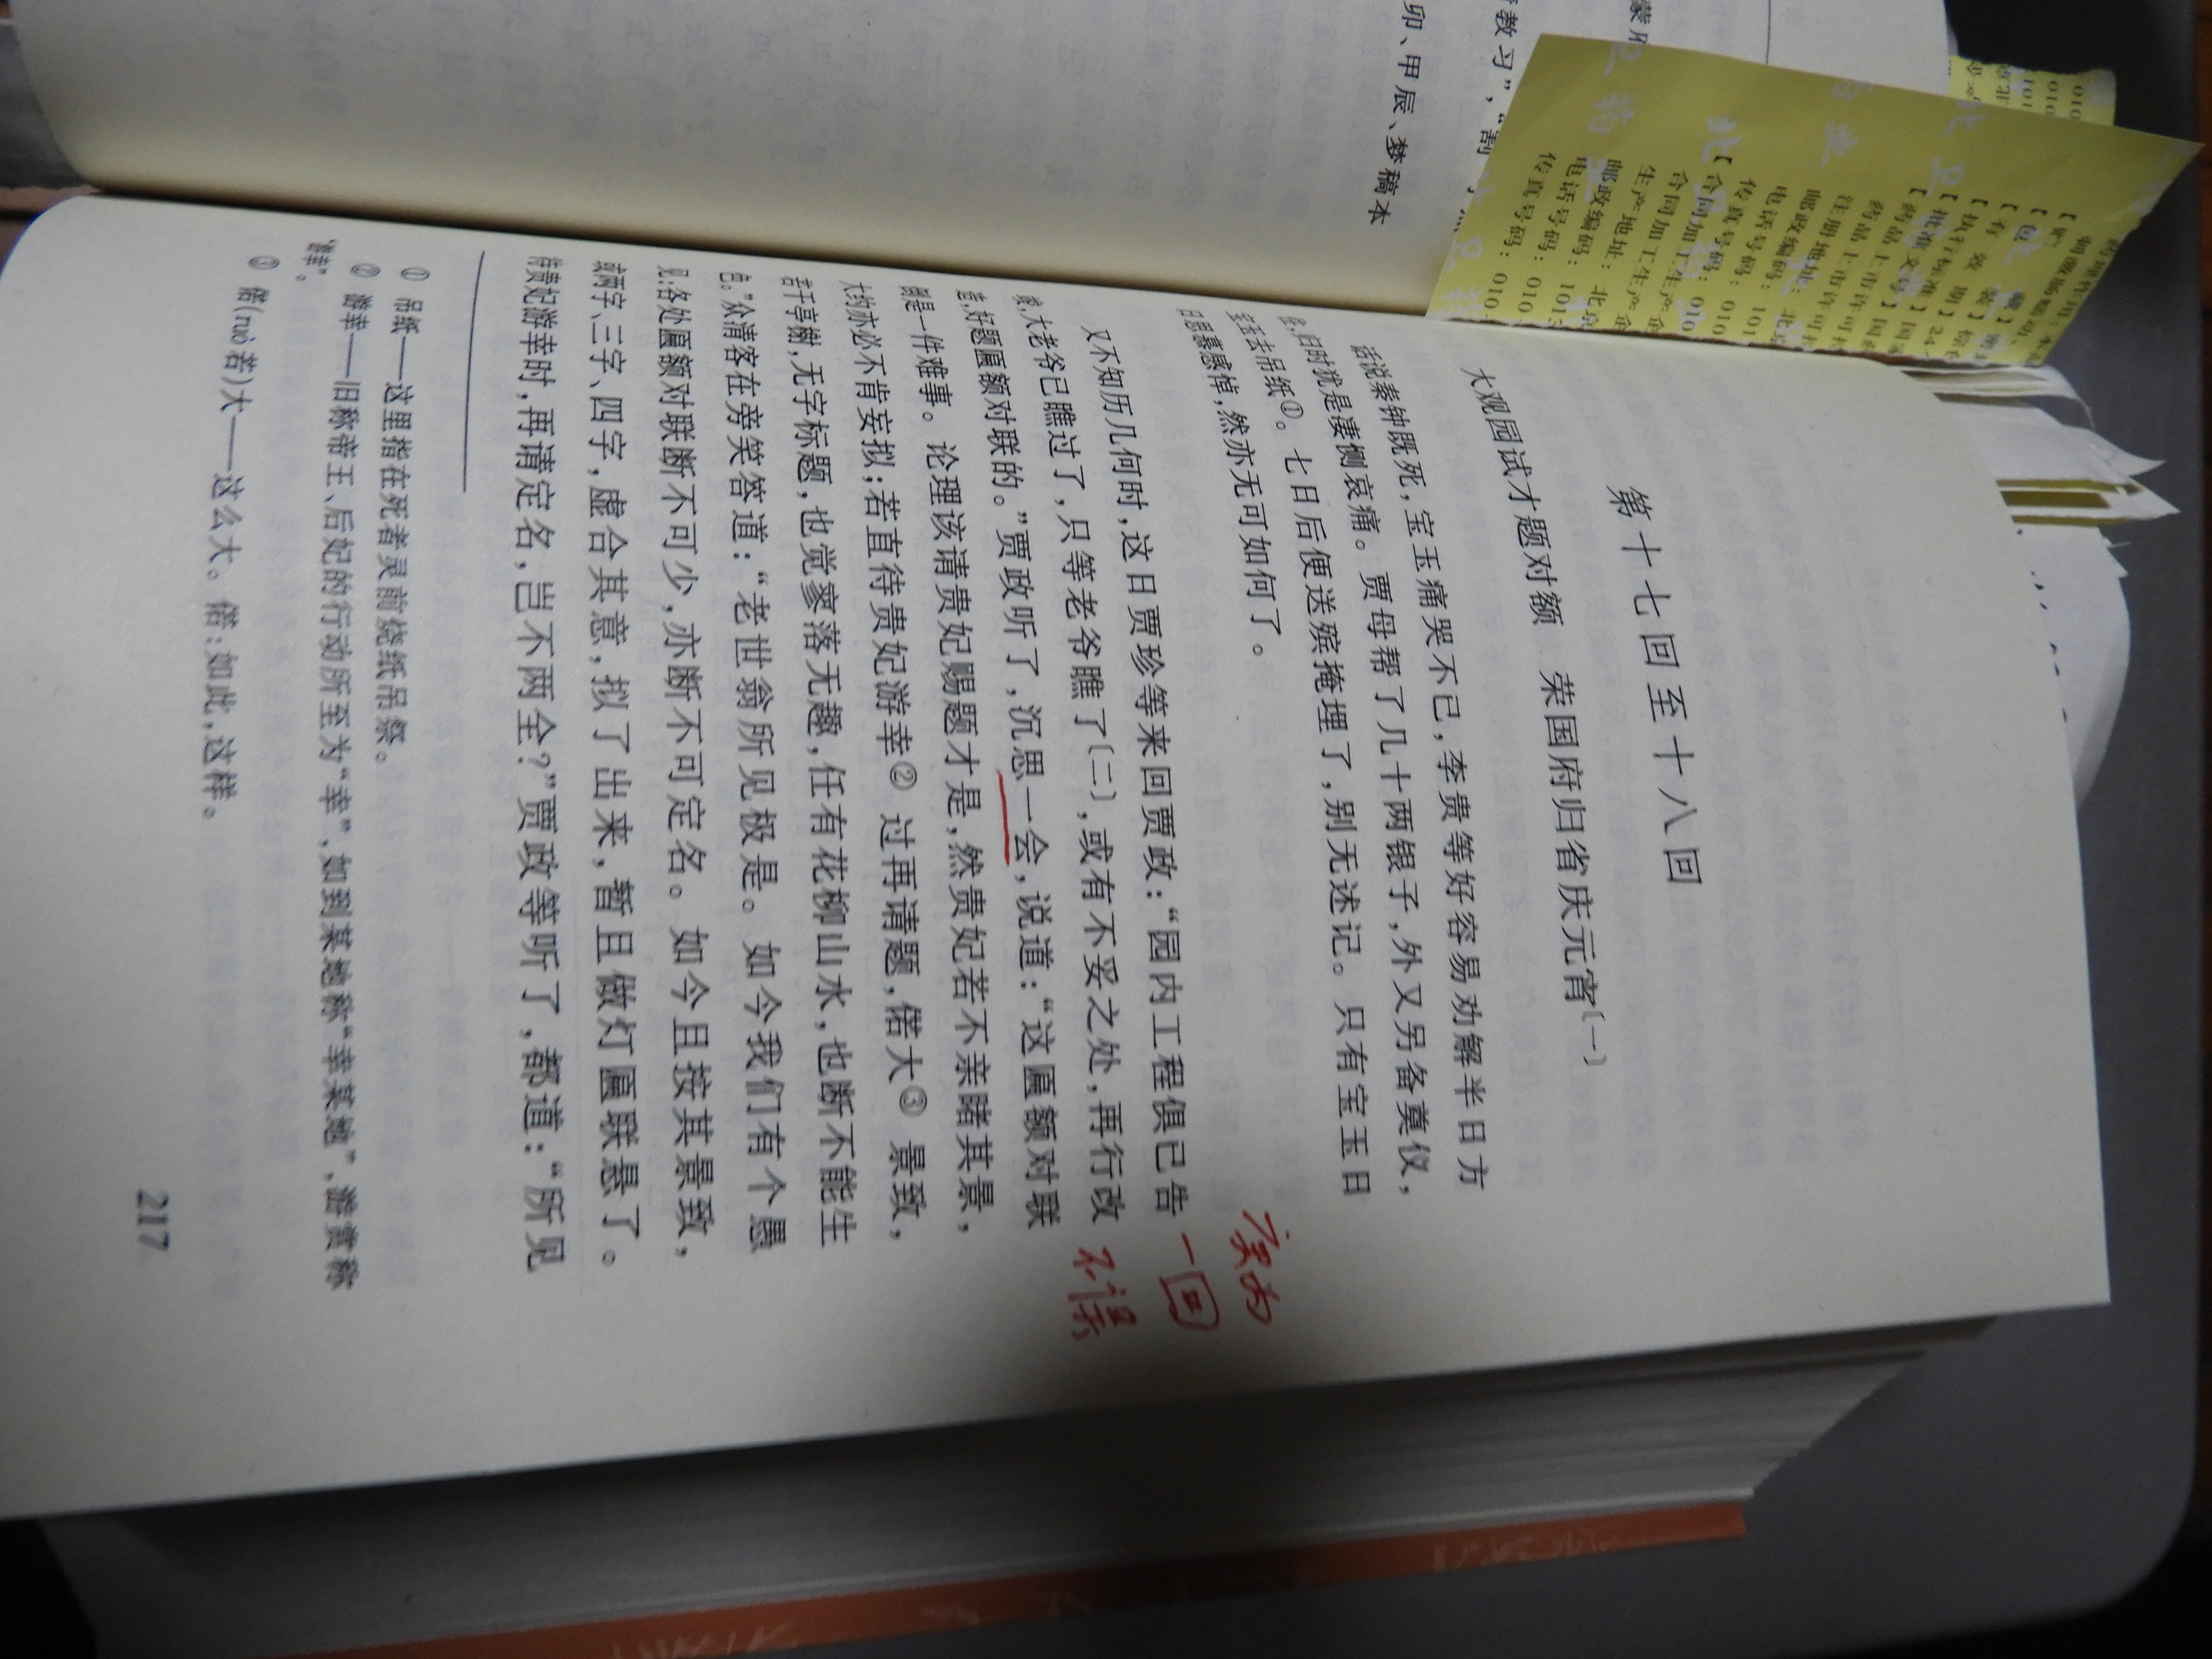 教习”，“割
卯、甲辰、梦稿本
电话号码：010
传真号码：010
【合同加工生产企
生产地址：北京
邮政编码：101
电话号码：010
传真号码：010
第十七回至十八回
大观园试才题对额　荣国府归省庆元宵〔一〕
话说秦钟既死，宝玉痛哭不已，李贵等好容易劝解半日方
住，归时犹是凄恻哀痛。贾母帮了几十两银子，外又另备奠仪，
宝玉去吊纸①。七日后便送殡掩埋了，别无述记。只有宝玉日
日思慕感悼，然亦无可如何了。
又不知历几何时，这日贾珍等来回贾政：“园内工程俱已告
竣，大老爷已瞧过了，只等老爷瞧了〔二〕，或有不妥之处，再行改
造，好题匾额对联的。”贾政听了，沉思一会，说道：“这匾额对联
倒是一件难事。论理该请贵妃赐题才是，然贵妃若不亲睹其景，
大约亦必不肯妄拟；若直待贵妃游幸②过再请题，偌大③景致，
若干亭榭，无字标题，也觉寥落无趣，任有花柳山水，也断不能生
色。”众清客在旁笑答道：“老世翁所见极是。如今我们有个愚
见：各处匾额对联断不可少，亦断不可定名。如今且按其景致，
或两字、三字、四字，虚合其意，拟了出来，暂且做灯匾联悬了。
待贵妃游幸时，再请定名，岂不两全？”贾政等听了，都道：“所见
一回
不误
① 吊纸——这里指在死者灵前烧纸吊祭。
② 游幸——旧称帝王、后妃的行动所至为“幸”，如到某地称“幸某地”，游赏称
“游幸”。
③ 偌(ruò 若)大——这么大。偌：如此，这样。
217